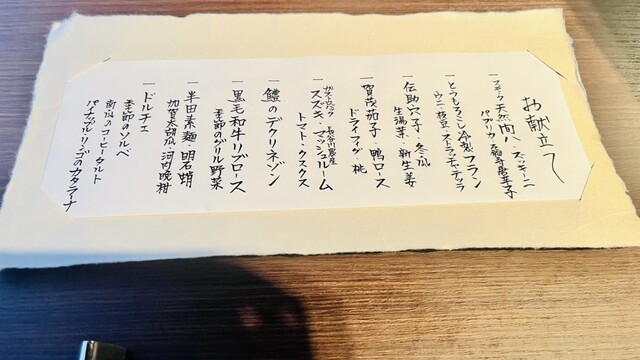 お献立て
一 フォアグラ 天然関ハ・ズッキーニ
パプリカ・万願寺唐辛子
一 とうもろこし冷製フラン
ウニ・枝豆・ストラッチャテッラ
一 伝助穴子・冬瓜
生湯葉・新生姜
一 賀茂茄子・鴨ロース
ドライフィグ・桃
一 長谷川農産
スズキ・マッシュルーム
トマト・クスクス
一 鱧のデクリネゾン
一 黒毛和牛リブロース
季節のグリル野菜
一 半田素麺・明石蛸
加賀太胡瓜・河内晩柑
一 ドルチェ
季節のソルベ
南瓜のコーヒータルト
パイナップル・リンゴのカタラーナ